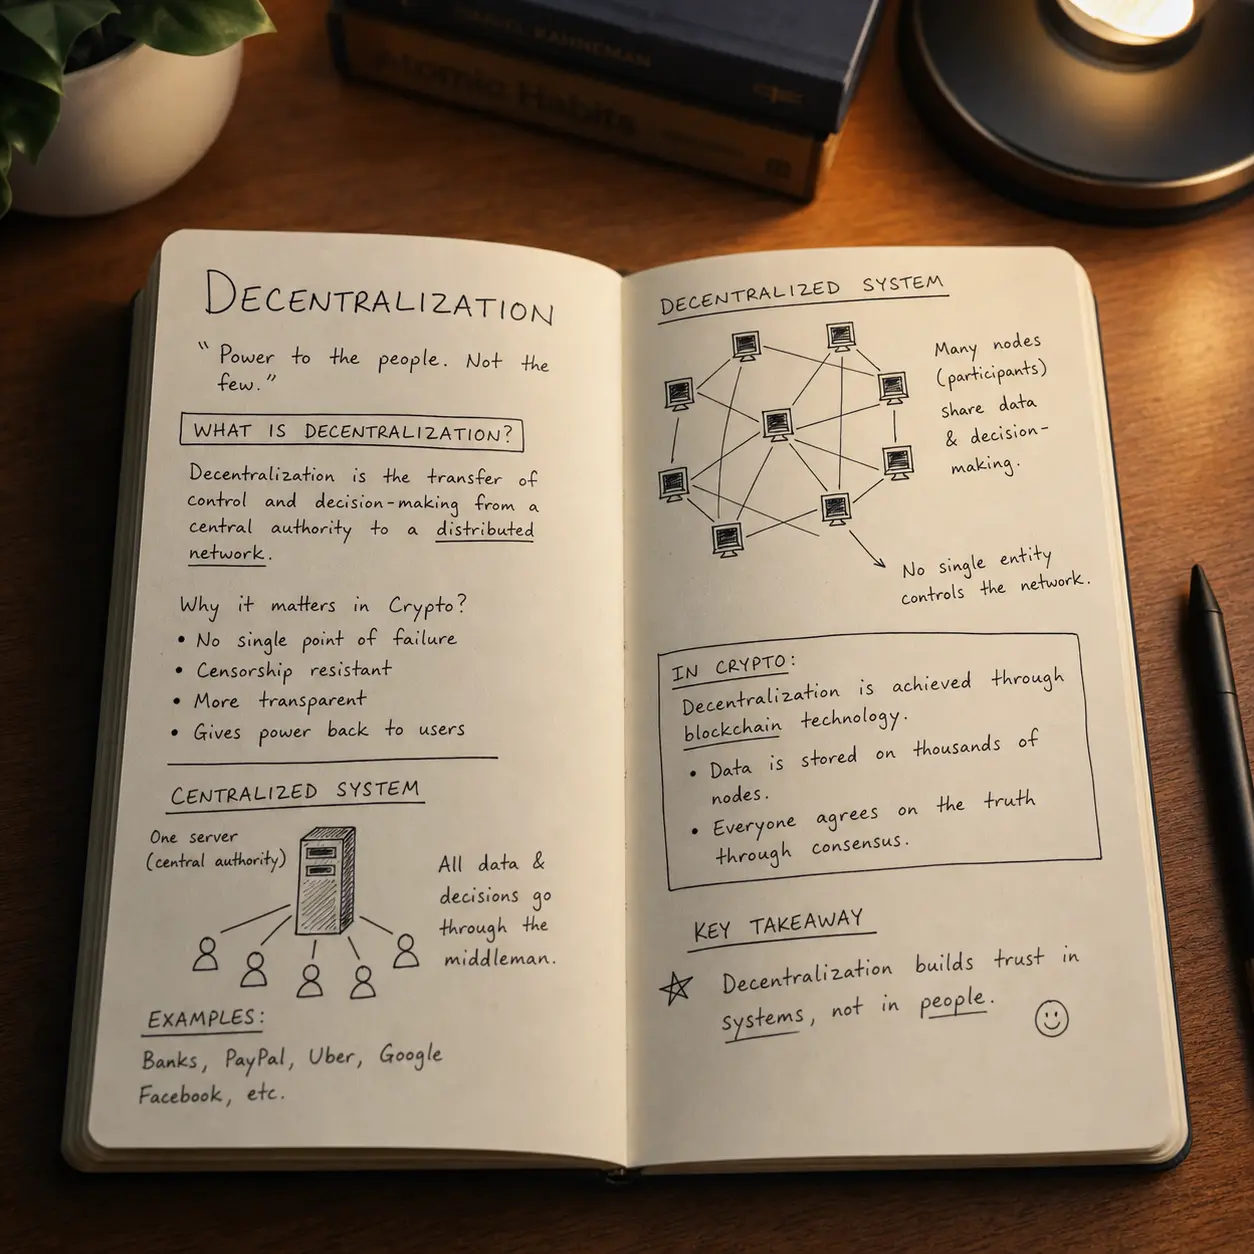 DANIEL KAHNEMAN
Atomic Habits
DECENTRALIZATION
“Power to the people. Not the
few.”
WHAT IS DECENTRALIZATION?
Decentralization is the transfer of
control and decision-making from a
central authority to a distributed
network.
Why it matters in Crypto?
• No single point of failure
• Censorship resistant
• More transparent
• Gives power back to users
CENTRALIZED SYSTEM
One server
(central authority)
All data &
decisions go
through the
middleman.
EXAMPLES:
Banks, PayPal, Uber, Google
Facebook, etc.
DECENTRALIZED SYSTEM
Many nodes
(participants)
share data
& decision-
making.
No single entity
controls the network.
IN CRYPTO:
Decentralization is achieved through
blockchain technology.
• Data is stored on thousands of
nodes.
• Everyone agrees on the truth
through consensus.
KEY TAKEAWAY
Decentralization builds trust in
systems, not in people.